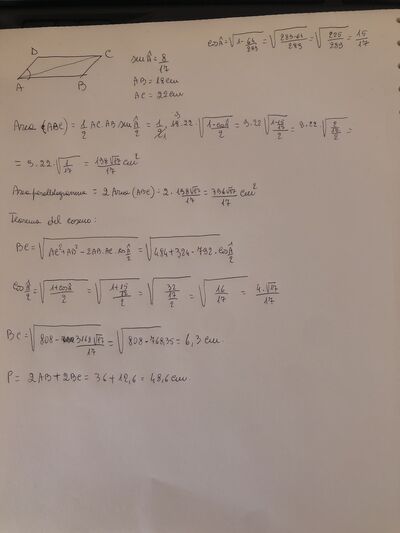 D C
A B
sin Â = 8/17
AB = 18cm
AC = 22cm
cos Â = √(1 - 64/289) = √((289-64)/289) = √(225/289) = 15/17
Area (ABC) = 1/2 AC·AB sin Â/2 = 1/2 18·22·√((1-cosÂ)/2) = 9·22 √((1-15/17)/2) = 9·22·√((2/17)/2) =
= 9·22·√(1/17) = 198√17/17 cm²
Area parallelogramma = 2 Area (ABC) = 2·198√17/17 = 396√17/17 cm²
Teorema del coseno:
BC = √(AC²+AB² - 2AB·AC·cos Â/2) = √(484+324-792·cos Â/2)
cos Â/2 = √((1+cosÂ)/2) = √((1+15/17)/2) = √((32/17)/2) = √(16/17) = 4·√17/17
BC = √(808 - 3168√17/17) = √(808-768,35) = 6,3 cm
P = 2AB+2BC = 36+12,6 = 48,6 cm